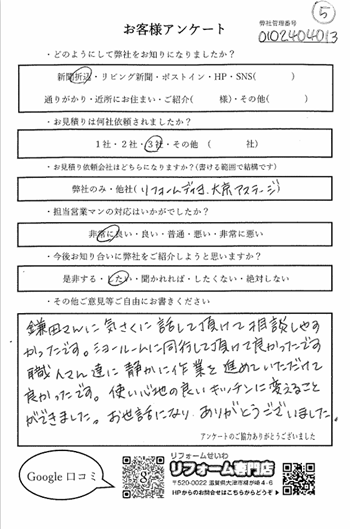 ⑤
お客様アンケート
弊社管理番号
0102404013
・どのようにして弊社をお知りになりましたか？
新聞折込・リビング新聞・ポストイン・HP・SNS( )
通りがかり・近所にお住まい・ご紹介( 様)・その他( )
・お見積りは何社依頼されましたか？
1社・2社・3社・その他 ( 社)
・お見積り依頼会社はどちらになりますか？(書ける範囲で結構です)
弊社のみ・他社(リフォーム 大京アステージ)
・担当営業マンの対応はいかがでしたか？
非常に良い・良い・普通・悪い・非常に悪い
・今後お知り合いに弊社をご紹介しようと思いますか？
是非する・したい・聞かれれば・したくない・絶対しない
・その他ご意見等ご自由にお書きください
鎌田さんに気さくに話して頂けて相談しやす
かったです。ショールームに同行して頂けて良かったです
職人さん達に静かに作業を進めていただけて
良かったです。使い心地の良いキッチンに変えること
ができました。お世話になり ありがとうございました。
アンケートのご協力ありがとうございました
Google 口コミ
リフォームせいわ
リフォーム専門店
〒520-0022 滋賀県大津市柳が崎4-6
HPからのお問合せはこちらからどうぞ